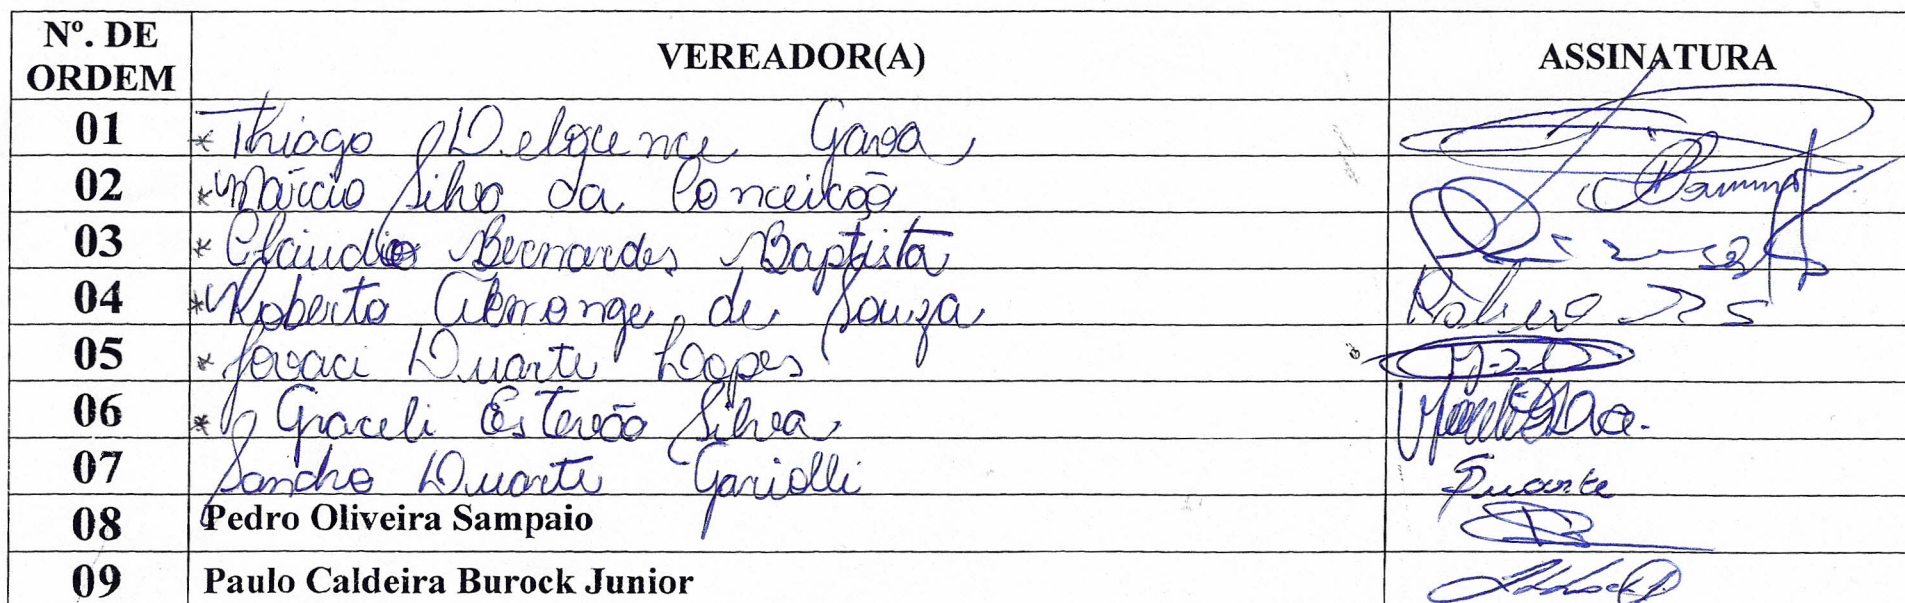 Nº. DE ORDEM VEREADOR(A) ASSINATURA
01 * Thiago Gava
02 * Márcio Silva da Conceição
03 * Cláudio Bernardes Baptista
04 * Roberto de Souza
05 * Jovaci Duarte Lopes
06 * Graceli Estevão Silva
07 Sandro Duarte Gariolli Duarte
08 Pedro Oliveira Sampaio
09 Paulo Caldeira Burock Junior